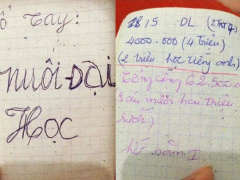 Sổ Tay:
NUÔI ĐẠI
HỌC
28/5 ĐL (2
4000.000 (4 triệu)
(2 triệu học tiếng anh)
Tổng cộng 62.500.0
sáu mươi hai triệu
rưỡi)
hết năm I